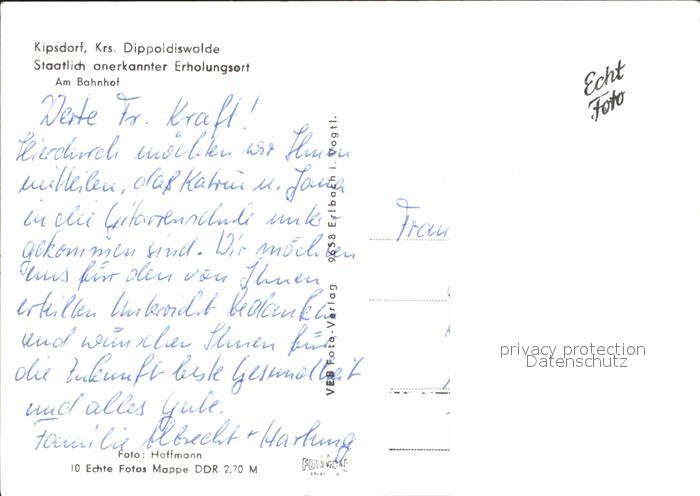 Kipsdorf, Krs. Dippoldiswalde
Staatlich anerkannter Erholungsort
Am Bahnhof
Echt
Foto
Werte Fr. Kraft!
Hierdurch möchten wir Ihnen
mitteilen, daß Katrin u. Jana
in die Gitarrenschule unter-
gekommen sind. Wir möchten
uns für den von Ihnen
erteilten Unterricht bedanken
und wünschen Ihnen für
die Zukunft beste Gesundheit
und alles Gute.
Familie Albrecht + Hartung
Foto: Hoffmann
10 Echte Fotos Mappe DDR 2.70 M
VEB Foto-Verlag 9658 Erlbach i. Vogtl.
Frau
privacy protection
Datenschutz